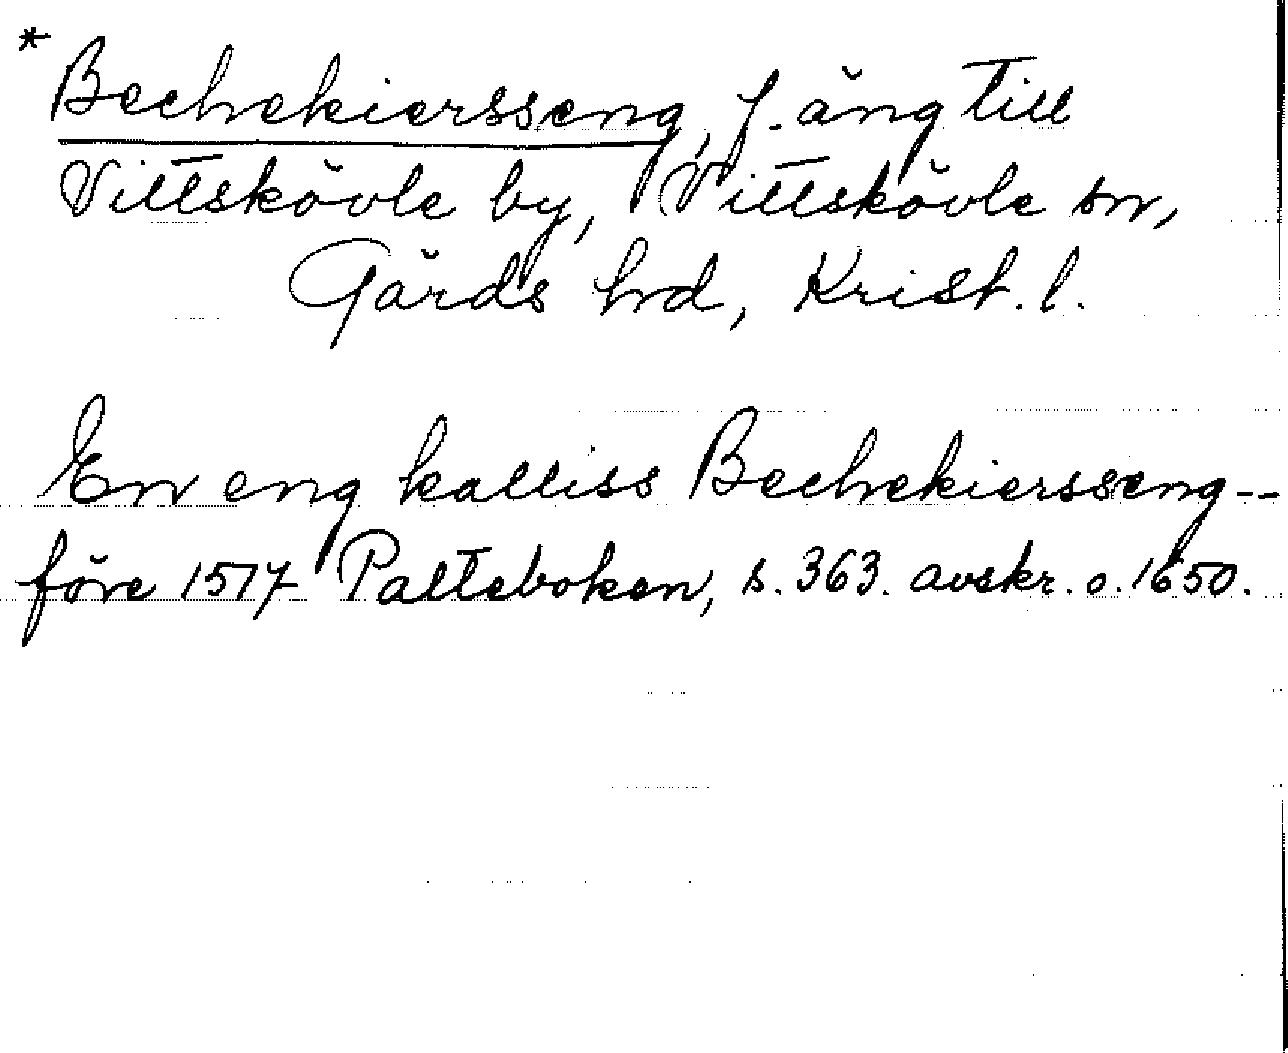 * Bechekiersseng, f. äng till
Vittskövle by, Vittskövle sn,
Gärds hd, Krist. l.
En eng kalliss Bechekiersseng--
före 1517 Palteboken, s. 363. avskr. o. 1650.